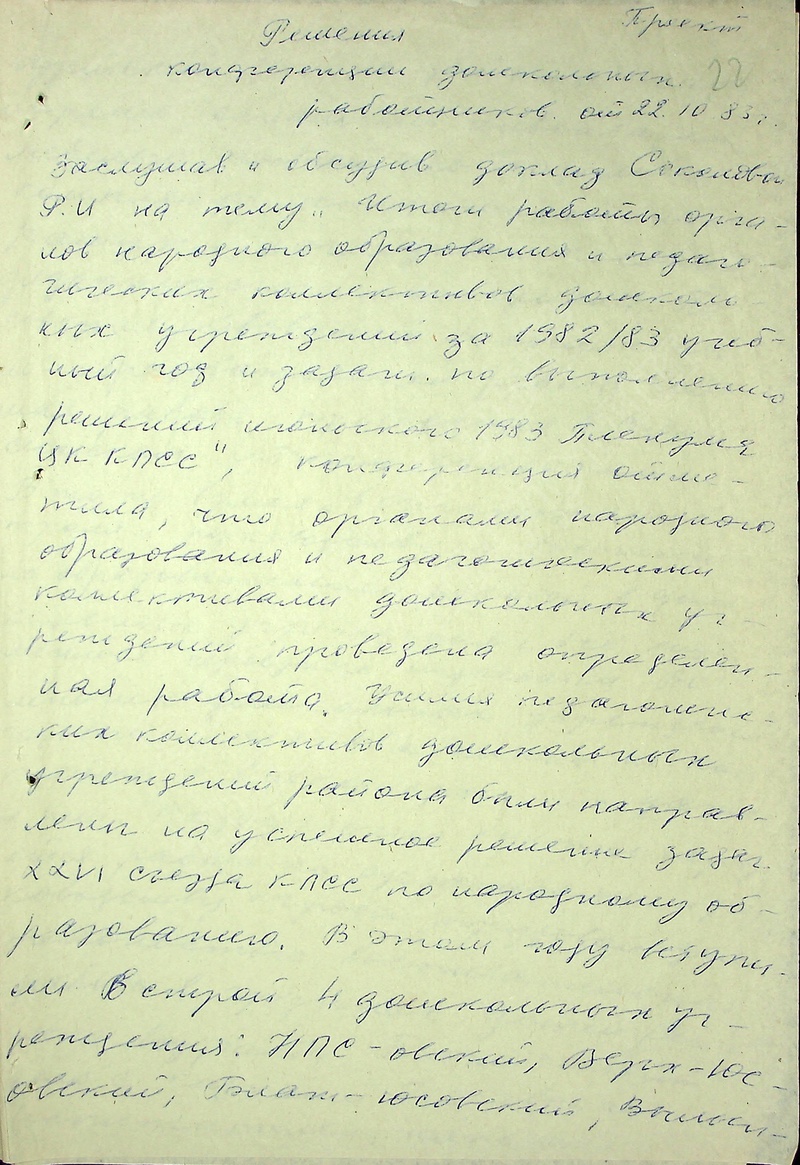 Проект
Решения
конференции дошкольных 22
работников. от 22. 10 83 г.
Заслушав и обсудив доклад Соколовой
Р.И на тему „ Итоги работы орга-
нов народного образования и педаго-
гических коллективов дошколь-
ных учреждений за 1982/83 учеб-
ный год и задачи по выполнению
решений июньского 1983 Пленума
ЦК КПСС", конференция отме-
тила, что органами народного
образования и педагогическими
коллективами дошкольных уч-
реждений проведена определен-
ная работа. Усилия педагогичес-
ких коллективов дошкольных
учреждений района были направ-
лены на успешное решение задач
XXVI съезда КПСС по народному об-
разованию. В этом году вступи-
ли в строй 4 дошкольных уч-
реждения: НПС-овский, Верх-Юс-
овский,